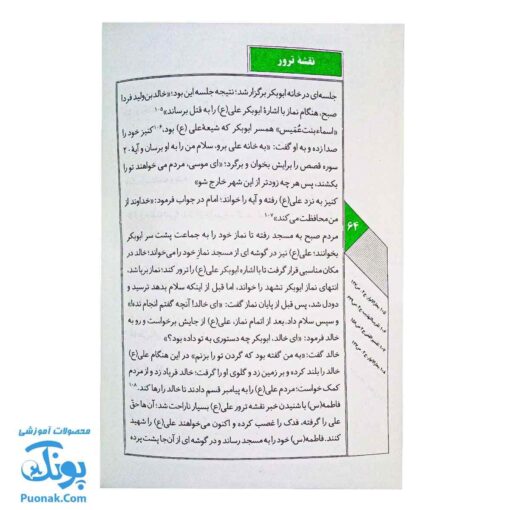 نقشهٔ ترور
جلسه‌ای در خانه ابوبکر برگزار شد؛ نتیجه جلسه این بود: «خالد بن ولید فردا
صبح، هنگام نماز با اشارهٔ ابوبکر علی(ع) را به قتل برساند»۱۰۵
«اسماء بنت عُمَیس» همسر ابوبکر که شیعهٔ علی(ع) بود،۱۰۶ کنیز خود را
صدا زده و به او گفت: «به خانه علی برو، سلام من را به او برسان و آیهٔ ۲۰
سوره قصص را برایش بخوان و برگرد؛ «ای موسی، مردم می خواهند تو را
بکشند، پس هر چه زودتر از این شهر خارج شو»
کنیز به نزد علی(ع) رفته و آیه را خواند؛ امام در جواب فرمود: «خداوند از
من محافظت می کند»۱۰۷
مردم صبح به مسجد رفته تا نماز خود را به جماعت پشت سر ابوبکر
بخوانند؛ علی(ع) نیز در گوشه ای از مسجد نماز خود را می‌خواند؛ خالد در
مکان مناسبی قرار گرفت تا با اشاره ابوبکر علی(ع) را ترور کند؛ نماز برپا شد.
انتهای نماز ابوبکر تشهد را خواند، اما قبل از اینکه سلام بدهد ترسید و
دودل شد، پس قبل از پایان نماز گفت: «ای خالد! آنچه گفتم انجام نده!»
و سپس سلام داد. بعد از اتمام نماز، علی(ع) از جایش برخواست و رو به
خالد فرمود: «ای خالد، ابوبکر چه دستوری به تو داده بود؟»
خالد گفت: «به من گفته بود که گردن تو را بزنم» در این هنگام علی(ع)
خالد را بلند کرده و بر زمین زد و گلوی او را گرفت؛ خالد فریاد زد و از مردم
کمک خواست؛ مردم علی(ع) را به پیامبر قسم دادند تا خالد را رها کند.۱۰۸
فاطمه(س) با شنیدن خبر نقشه ترور علی(ع) بسیار ناراحت شد؛ آن‌ها حقّ
علی را گرفته، فدک را غصب کرده و اکنون می‌خواهند علی(ع) را شهید
کنند. فاطمه(س) خود را به مسجد رساند و در گوشه ای از آن‌جا پشت پرده
۶۴
محصولات آموزشی
پونک
Puonak.Com